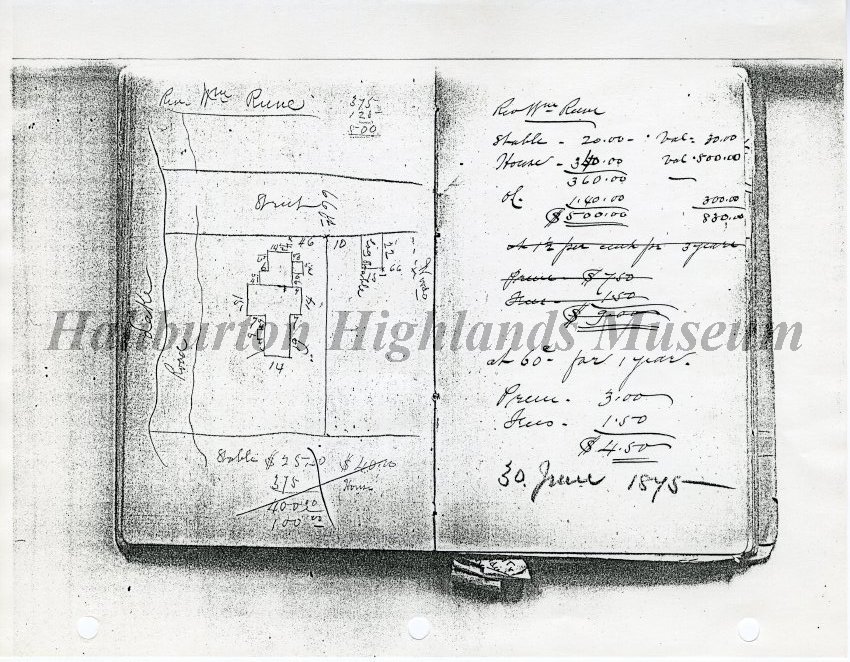 Rev. Wm Rune
375
125
500
Street
66 ft
46
10
32
66
Log Stable
14
Stable $25.00 $40.00
375 House
400.00
100
Rev Wm Rune
Stable - 20.00 - Val = 30.00
House - 340.00 Val . 500.00
360.00
140.00 300.00
$500.00 830.00
at 1½ per cent for 3 years
Prem $7.50
1.50
$9.00
at 60c for 1 year.
Prem - 3.00
1.50
$4.50
30. June 1875
Haliburton Highlands Museum